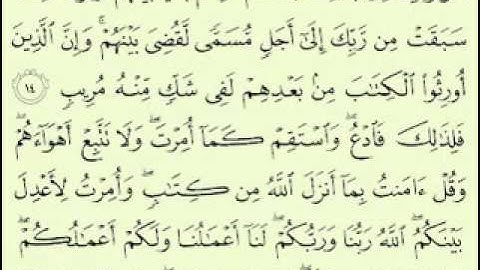 سَبَقَتْ مِن رَّبِّكَ إِلَىٰٓ أَجَلٍ مُّسَمًّى لَّقُضِىَ بَيْنَهُمْ ۚ وَإِنَّ ٱلَّذِينَ
أُورِثُوا۟ ٱلْكِتَـٰبَ مِنۢ بَعْدِهِمْ لَفِى شَكٍّ مِّنْهُ مُرِيبٍ ١٤
فَلِذَٰلِكَ فَٱدْعُ ۖ وَٱسْتَقِمْ كَمَآ أُمِرْتَ ۖ وَلَا تَتَّبِعْ أَهْوَآءَهُمْ ۖ
وَقُلْ ءَامَنتُ بِمَآ أَنزَلَ ٱللَّهُ مِن كِتَـٰبٍ ۖ وَأُمِرْتُ لِأَعْدِلَ
بَيْنَكُمُ ۖ ٱللَّهُ رَبُّنَا وَرَبُّكُمْ ۖ لَنَآ أَعْمَـٰلُنَا وَلَكُمْ أَعْمَـٰلُكُمْ ۖ